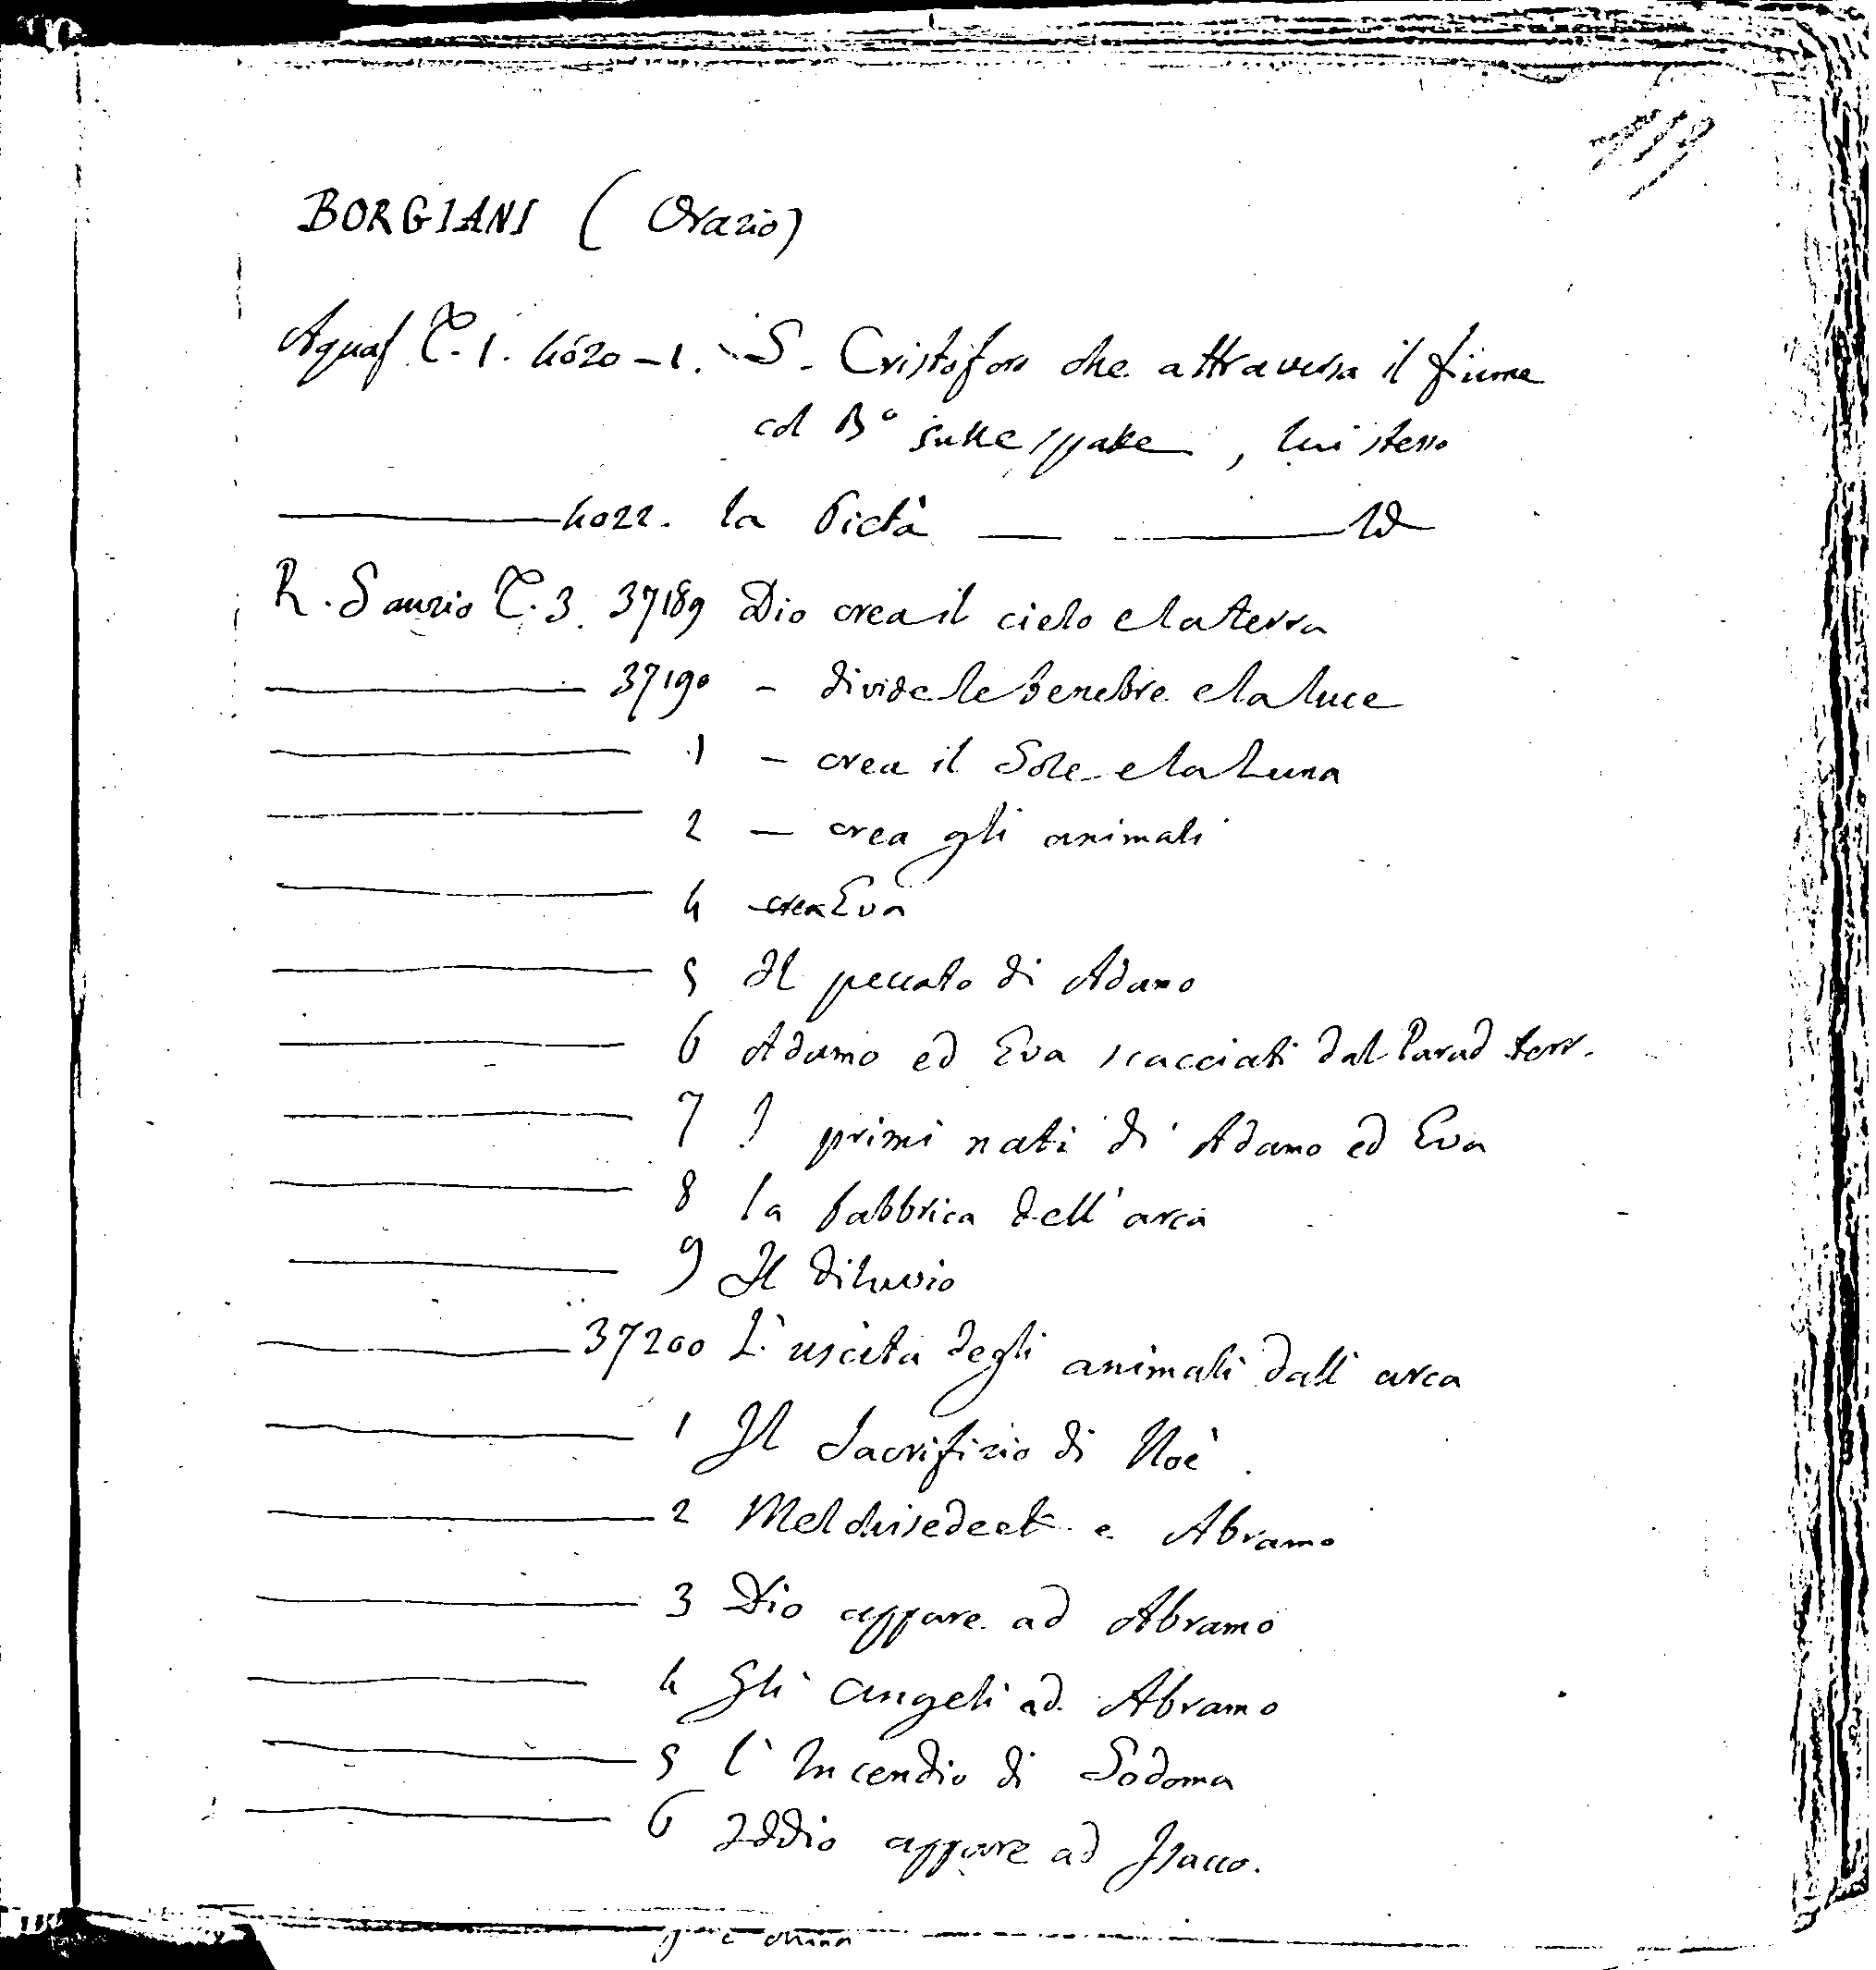 BORGIANI (Orazio)
Aquaf T. 1. 4020-1. S. Cristoforo che attraversa il fiume
col B° sulle spalle, lui stesso
——— 4022. la Pietà — ——— Id
R. Sanzio T. 3. 37189 Dio crea il cielo e la terra
——— 37190 - divide le tenebre e la luce
——— 1 - crea il Sole e la Luna
——— 2 — crea gli animali
——— 4 crea Eva
——— 5 Il peccato di Adamo
——— 6 Adamo ed Eva scacciati dal Parad terr.
——— 7 I primi nati di Adamo ed Eva
——— 8 la fabbrica dell'arca
——— 9 Il diluvio
——— 37200 L'uscita degli animali dall'arca
——— 1 Il Sacrifizio di Noè
——— 2 Melchisedech e Abramo
——— 3 Dio appare ad Abramo
——— 4 Gli Angeli ad Abramo
——— 5 l'Incendio di Sodoma
——— 6 Iddio appare ad Isacco.